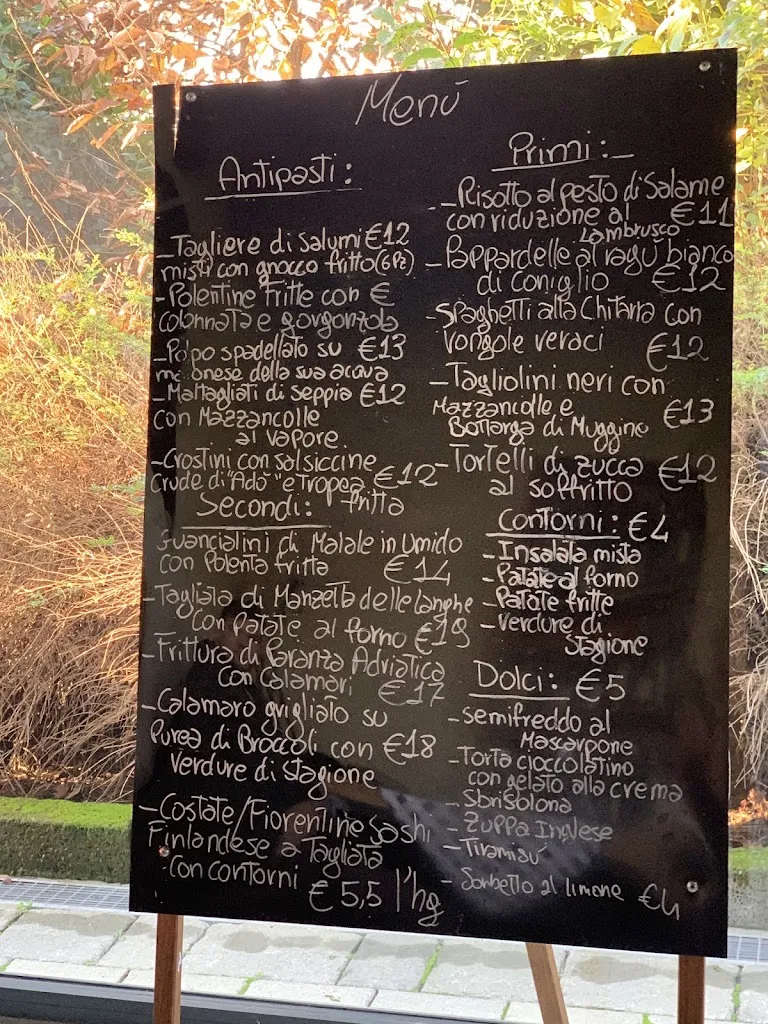 Menù
Antipasti:
_Tagliere di salumi €12
misti con gnocco fritto (6Pz)
_Polentine fritte con €
colonnata e gorgonzola
_Polpo spadellato su €13
della sua acqua
_Maltagliati di seppia €12
con Mazzancolle
al vapore
_Crostini con salsiccine
Crude di "Ado" e Tropea €12
fritta
Secondi:
Guancialini di Maiale in Umido
con Polenta fritta €14
_Tagliata di Manzetta delle langhe
con Patate al forno €19
_Frittura di Paranza Adriatica
con Calamari €17
_Calamaro grigliato su
Purea di Broccoli con €18
Verdure di stagione
_Costate/Fiorentine Sashi
Finlandese a Tagliata
con contorni
€5,5 l'hg
Primi:
_Risotto al pesto di Salame
con riduzione al €11
Lambrusco
_Pappardelle al ragù bianco
di coniglio €12
_Spaghetti alla Chitarra con
Vongole veraci €12
_Tagliolini neri con
Mazzancolle e €13
Bottarga di Muggine
_Tortelli di zucca €12
al soffritto
Contorni: €4
_Insalata mista
_Patate al forno
_Patate fritte
_Verdure di
stagione
Dolci: €5
_semifreddo al
Mascarpone
_Torta cioccolatino
con gelato alla crema
_Sbrisolona
_Zuppa Inglese
_Tiramisù
_Sorbetto al limone €4